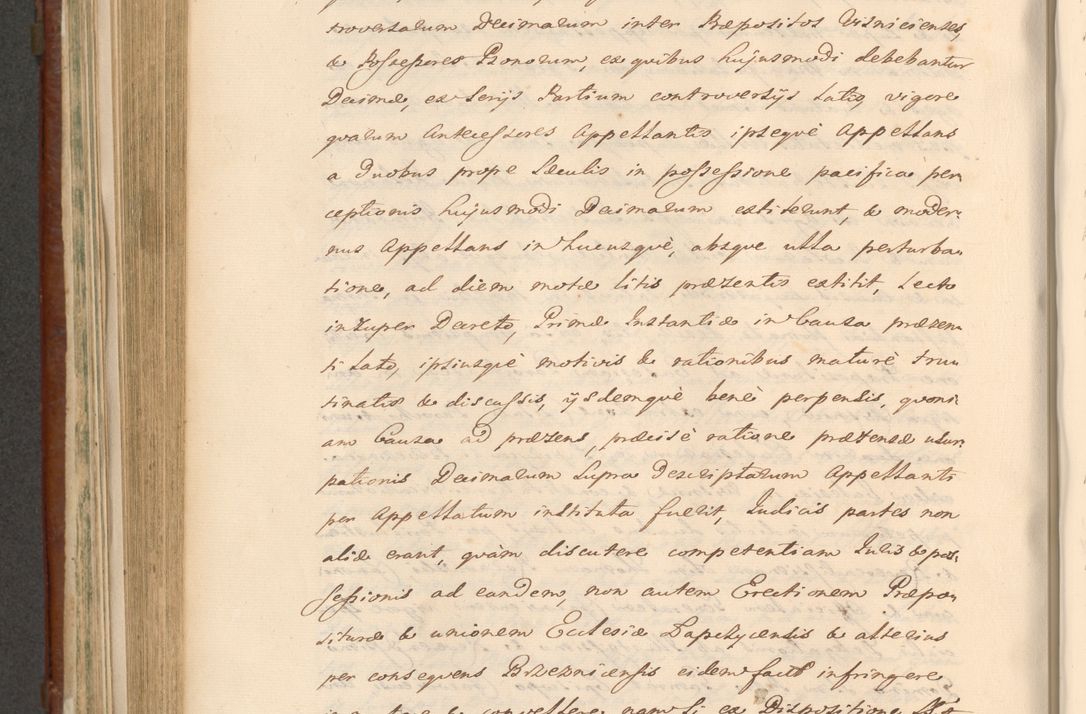 troversarum Decimarum inter Præpositos Visnicienses,
& Possessores Bonorum, ex quibus hujusmodi debebantur
Decimæ, ex serijs Partium controversijs Latis, vigore
quarum Antecessores Appellantis ipseque Appellans
a Duobus prope Sæculis in possessione pacifica per
ceptionis hujusmodi Decimarum extiterunt, & moder
nus Appellans in hucusquè, absque ulla perturba
tione, ad diem motæ litis præzentis extitit, Lecto
insuper Decreto, Primæ Instantiæ in Causa præzen
ti Lato, ipsiusqè motivis & rationibus maturè tru
tinatis & discussis, ijsdemquè benè perpensis, quoni
am Causa ad præzens, præcisè ratione prætensæ usur
pationis Decimarum Supra Descriptarum Appellanti
per Appellatum instituta fuerit, Judicis partes non
aliæ erant, quàm discutere competentiam Juris & pos
sessionis ad eandem, non autem Erectionem Præpo
situræ & unionem Ecclesiæ Lapchycensis & alterius
per consequens Brzeznicensis eidem facta infringere
convellere nam si ex Dispositione